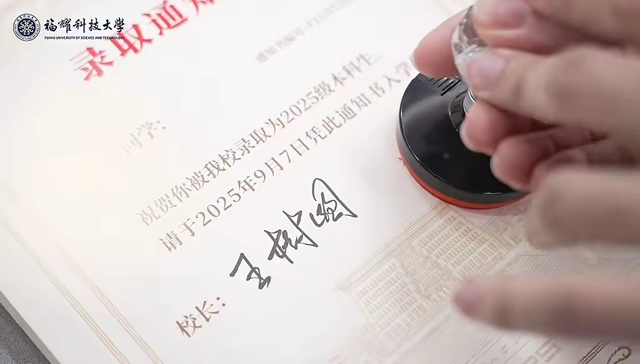 福耀科技大学
FUYAO UNIVERSITY OF SCIENCE AND TECHNOLOGY
录取通知
通知书编号
同学：
祝贺你被我校录取为2025级本科生，
请于2025年9月7日凭此通知书入学
校长：王树国